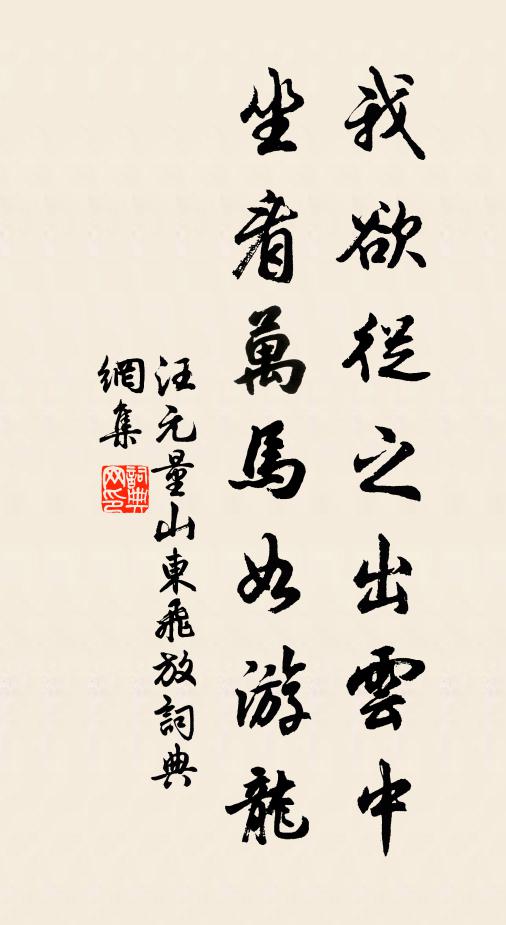 我欲從之出雲中
坐看萬馬如游龍
汪元量山東飛放詞典
網集
詞典
网印